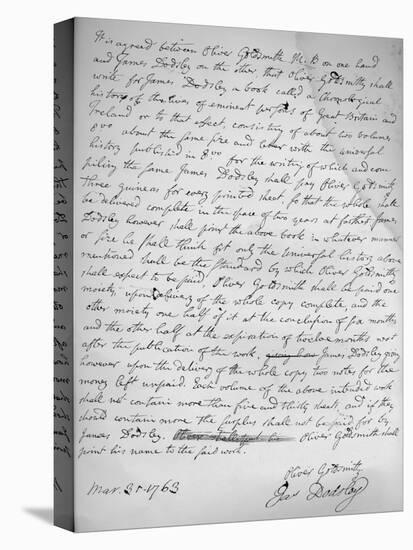 It is agreed between Oliver Goldsmith M. B on one hand
and James Dodsley on the other, that Oliver Goldsmith shall
write for James Dodsley a book called a Chronological
history of the lives of eminent persons of Great Britain and
Ireland or to that effect, consisting of about two volumes
8vo about the same size and letter with the universal
history published in 8vo for the writing of which and com
piling the same James Dodsley shall pay Oliver Goldsmith
Three guineas for every printed sheet, so that the whole shall
be delivered complete in the space of two years at farthest James
Dodsley however shall print the above book in whatever manner
or size he shall think fit only the Universal history above
mentioned shall be the standard by which Oliver Goldsmith
shall expect to be paid. Oliver Goldsmith shall be paid one
moiety upon delivery of the whole copy complete, and the
other moiety one half of it at the conclusion of six months
and the other half at the expiration of twelve months next
after the publication of the work. James Dodsley giving
however upon the delivery of the whole copy two notes for the
money left unpaid. Each volume of the above intended work
shall not contain more than five and thirty sheets, and if they
should contain more the surplus shall not be paid for by
James Dodsley. Oliver Goldsmith shall
print his name to the said work.
Oliver Goldsmith
Jas Dodsley
Mar. 31. 1763